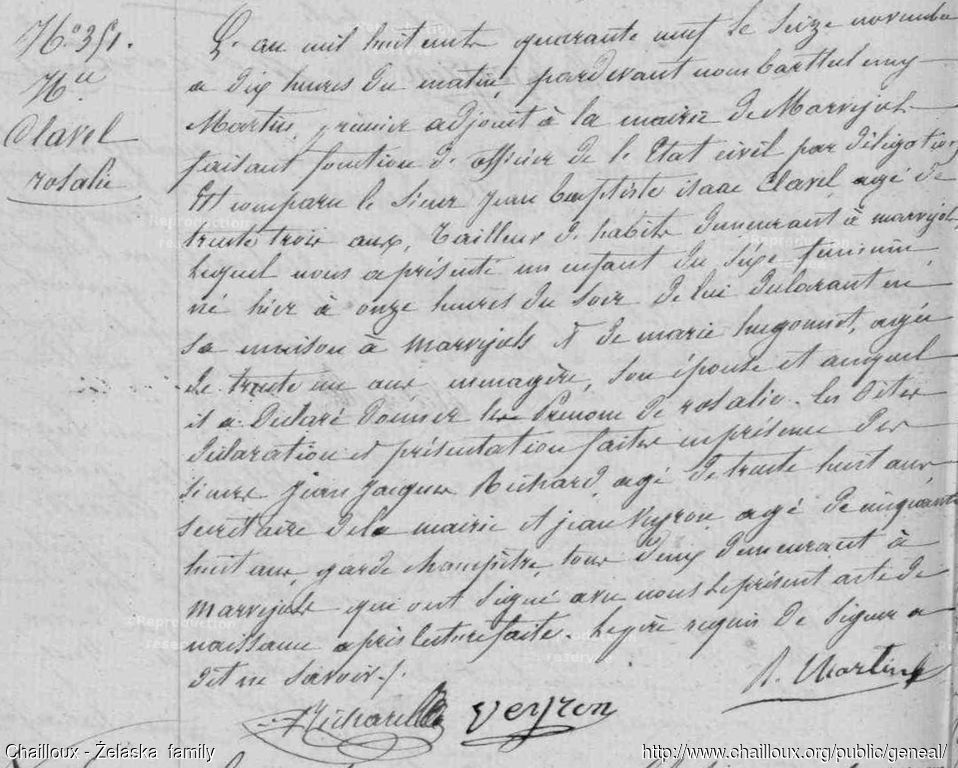 N° 351.
N.ce
Clavel
rosalie
L'an mil huit cents quarante neuf le seize novembre
a dix heures du matin, pardevant nous barthelemy
Martin, premier adjoint à la mairie de Marvejols
faisant fonction d'officier de l'Etat civil par délégation
Est comparu le sieur jean baptiste isaac Clavel agé de
trente trois ans, tailleur d'habits demeurant à marvejols
lequel nous a présenté un enfant du sexe feminin,
né hier à onze heures du soir de lui declarant en
sa maison à marvejols et de marie hugonnet, agée
de trente un ans menagère, son épouse et auquel
il a declaré donner les Prenoms de rosalie. les dites
déclaration et présentation faites en présence des
sieurs jean jacques Richard, agé de trente huit ans
secretaire de la mairie et jean Veyron agé de cinquante
huit ans, garde champêtre, tous deux demeurant à
marvejols qui ont signé avec nous le présent acte de
naissance après lecture faite. le père requis de signer a
dit ne savoir./.
B. Martin
Richard Veyron
©Reproduction
reservée
Chailloux - Želaska family
http://www.chailloux.org/public/geneal/